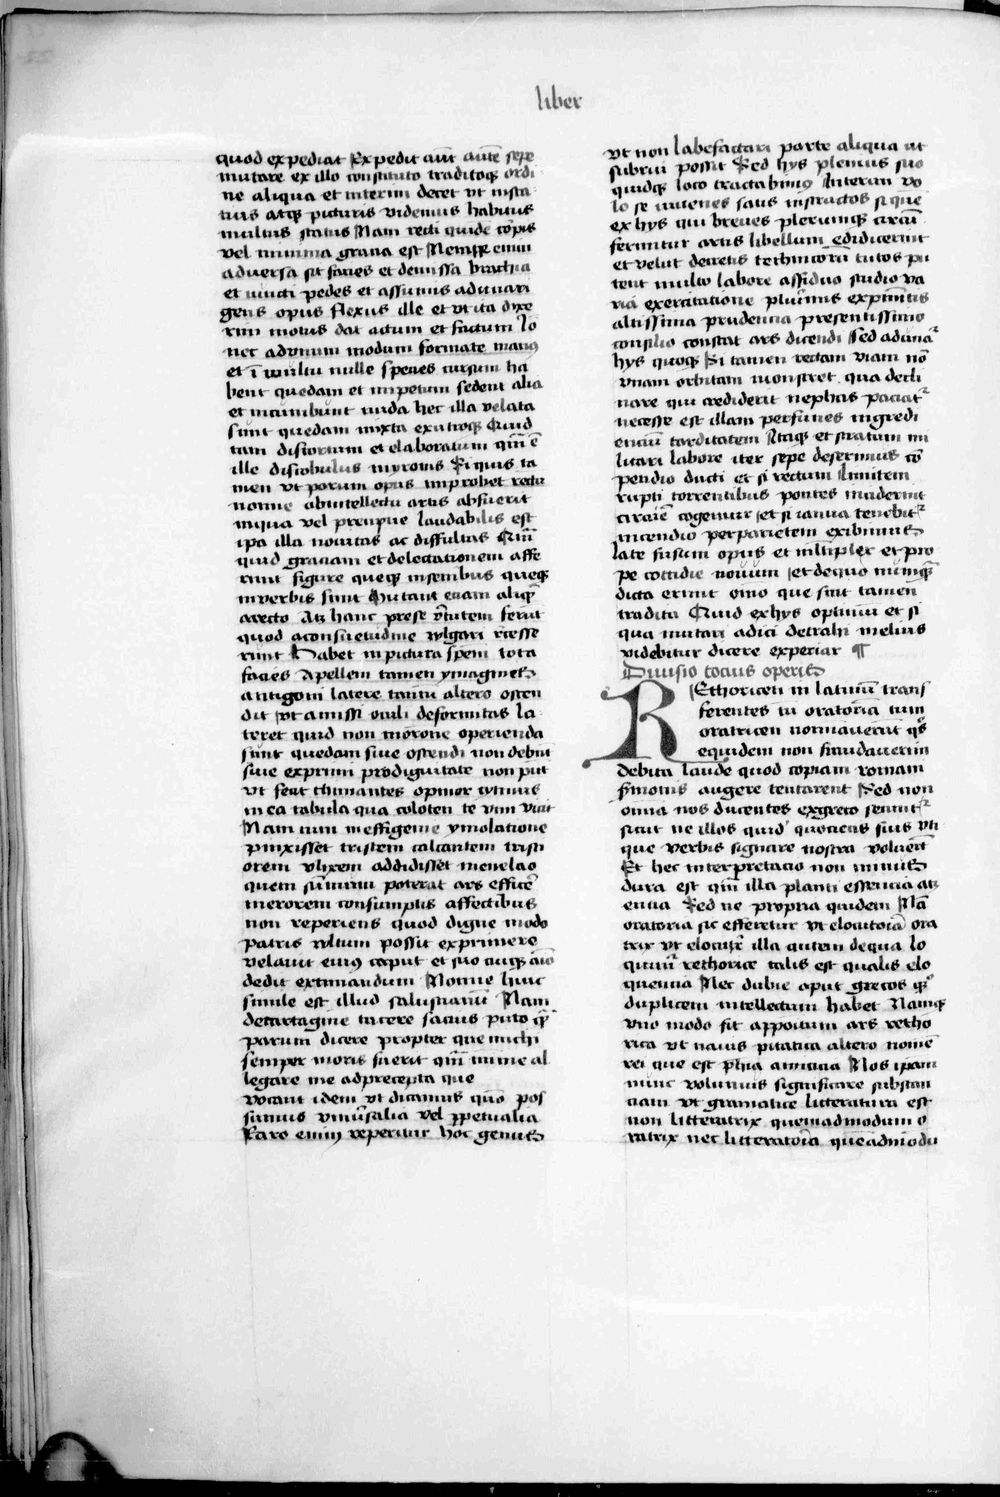 liber
quod expediat Expedit aūt aūte sepe
mutare ex illo constituto traditoqȝ ordi
ne aliqua et interim decet vt insta
tuis atqȝ picturis videmus habitus
multus status Nam recti quidē cōpis
vel minima gratia est Nempe enim
adversa sit facies et demissa brachia
et iuncti pedes et assumus adunari
gens opus flexus ille et vt ita dixe
rim motus dat actum et factum Io
nec adunum modum formate manꝰ
et ī vultu mille species cursum ha
bent quedam et impetum sedent alia
et incumbunt nuda hec illa velata
sunt quedam mixta exutroqȝ Quid
tam distortum et elaboratum qm̄ ē
ille discobulus myronis Si quis ta
men vt parum opus improbet rectu
nonne abintellectu artis abfuerit
inqua vel precipue laudabilis est
ipa illa nouitas ac difficultas Qm̄
quid graciam et delectationem affe
runt figure queqȝ insensibus queqȝ
inverbis sunt Mutant enim aliqͥ
arecto Atqȝ hanc prese v̄tutem ferūt
quod aconsuetudine vulgari recesse
runt Habet inpictura speni tota
facies Apellem tamen ymaginē
antigoni latere tantū altero osten
dit vt amissi oculi deformitas la
teret quid non inorone operienda
sunt quedam siue ostendi non debnt
siue exprimi prodignitate non pn̄t
vt fecit thimantes opinor cymius
in ea tabula qua coloten te vim vicit
Nam cum ineffigeine ymolatione
pinxisset tristem calcantem tristi
orem vlixem addidisset menelao
quem sūmum poterat ars efficē
merorem consumptis affectibus
non reperiens quod digne modo
patris vultum possit exprimere
velauit eiuꝰ caput et suo cuiqȝ aīo
dedit extimandum Nonne huic
simile est illud salustianū Nam
decartagine tacere sacius puto qͣ
parum dicere propter que michi
semper moris fuerit qm̄ mime al
legare me adprecepta que
vocant idem vt dicamus quō pos
sumus vniūsalia vel ꝑpetualia
Raro enim reperitur hoc genus
vt non labefactari parte aliqua ut
subrui possit Sed hys plenius suo
quidqȝ loco tractabimꝰ Interim vo
lo se iuuenes satis instructos si quē
ex hys qui breues plerumqȝ circū
feruntur artis libellum edidicerint
et velut decretis technicorū tutos pu
tent multo labore assiduo studio va
ria exercitatione plurīmis expimētis
altissima prudencia presentissimo
consilio constat ars dicendi Sed adiuuāt᷑
hys quoqȝ Si tamen rectam viam nō
vnam orbitam monstret qua decli
nare qui crediderit nephas paciat᷑
necesse est illam perfunes ingredi
encium tarditatem Itaqȝ et stratum mi
litari labore iter sepe deserimus cō
pendio ducti et si rectum limitem
rupti torrentibus pontes inciderint
circuīre cogemur et si ianua tenebit᷑
incendio perparietem exibimus
late fusum opus et multiplex et pro
pe cottidie nouum et dequo numqͣ
dicta erunt oīno que sint tamen
tradita Quid exhys optimū et si
qua mutari adici detrahi melius
videbitur dicere experiar ¶
Diuisio tocius operis
REthoricen in latinū trans
ferentes tū oratoriā tum
oratricen nominauerūt qͦs
equidem non fraudauerim
debita laude quod copiam romani
s̄monis augere tentarent Sed non
omīa nos ducentes exgreco secunt᷑
sicut ne illos quidē quociens suis vti
que verbis signare nostra voluerūt
Et hec interpretacio non minus
dura est qm̄ illa planti essencia atqȝ
encia Sed ne propria quidem Nā
oratoria sic efferetur vt elocutoriā ora
trix vt elocut̄x illa autem dequa lo
quimur rethorice talis est qualis elo
quencia Nec dubie aput grecos qͦqȝ
duplicem intellectum habet Namqȝ
vno modo fit appoitum ars retho
rica vt nauis piratica altero nomē
rei que est phīa amicicia Nos ipam
nunc volumus significare substan
ciam vt gramatice litteratura est
non litteratrix quemadmodum o
ratrix nec litteratoria quēadmodū